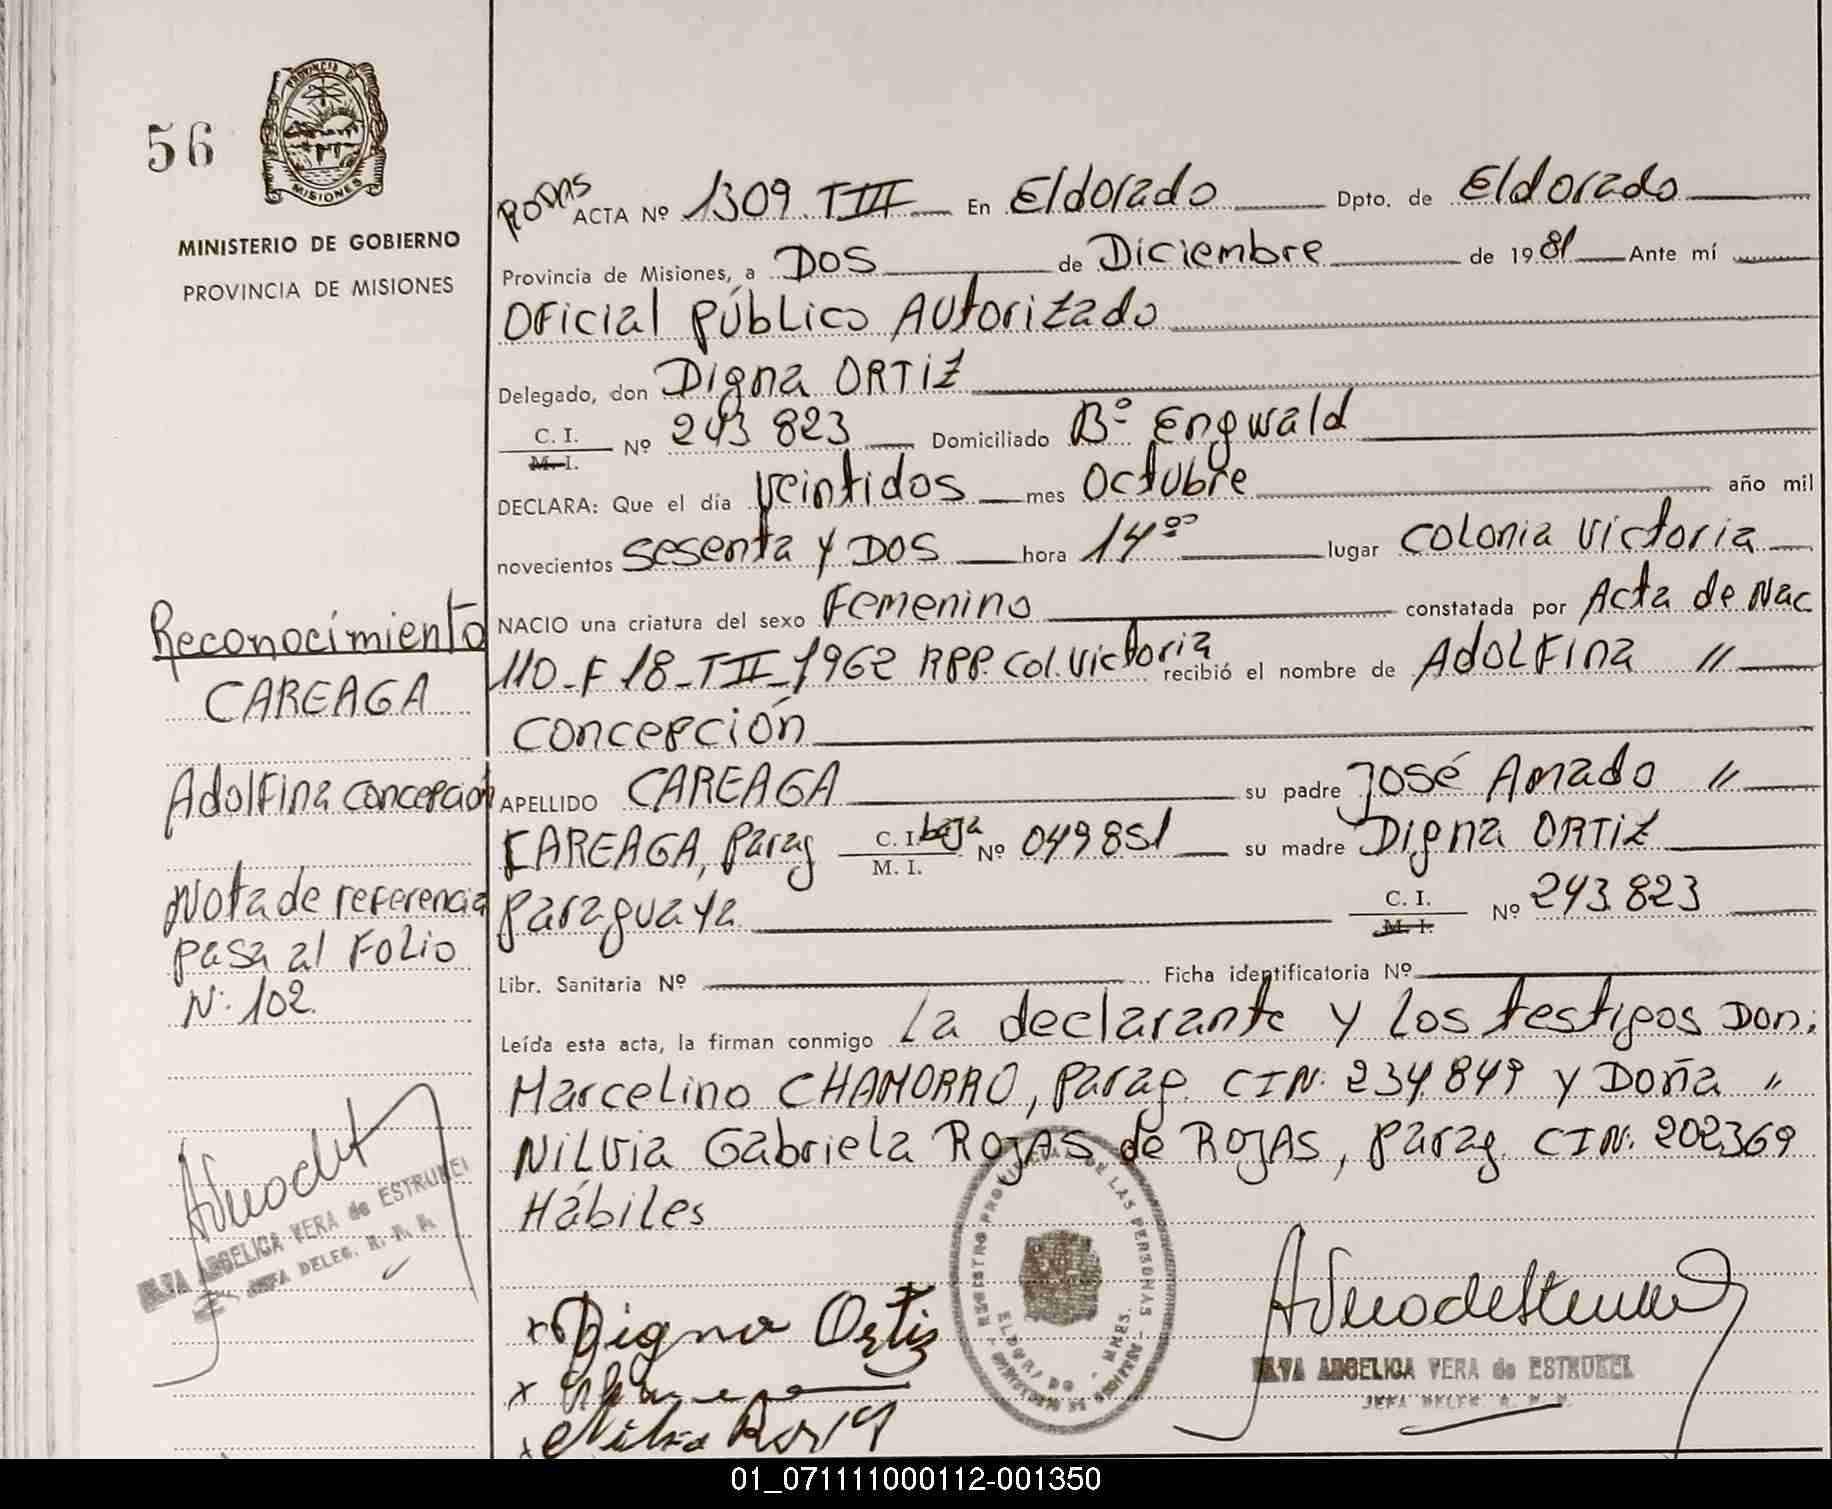 56
PROVINCIA DE
MISIONES
MINISTERIO DE GOBIERNO
PROVINCIA DE MISIONES
Reconocimiento
CAREAGA
Adolfina Concepción
Nota de referencia
pasa al Folio
Nº 102
ELVA ANGELICA VERA de ESTRUBEL
JEFA DELEG. R. P. P.
RODAS ACTA Nº 1309. T III En Eldorado Dpto. de Eldorado
Provincia de Misiones, a Dos de Diciembre de 1981 Ante mí
Oficial Público Autorizado
Delegado, don Digna ORTIZ
C. I. M. I. Nº 243 823 Domiciliado Bº Engwald
DECLARA: Que el día veintidos mes Octubre año mil
novecientos sesenta y Dos hora 14ºº lugar Colonia Victoria
NACIO una criatura del sexo Femenino constatada por Acta de Nac
110-F 18-T II-1962 RPP. Col. Victoria recibió el nombre de Adolfina "
Concepción
APELLIDO CAREAGA su padre José Amado "
CAREAGA, Parag C. I. M. I. baja Nº 049851 su madre Digna ORTIZ
paraguaya C. I. M. I. Nº 243.823
Libr. Sanitaria Nº Ficha identificatoria Nº
Leída esta acta, la firman conmigo La declarante y los testigos Don:
Marcelino CHAMORRO, parag. CIN: 234.849 y Doña "
Nilvia Gabriela ROJAS de ROJAS, parag. CIN: 202369
Hábiles
x Digna Ortiz
x
x
REGISTRO PROVINCIAL DE LAS PERSONAS
ELDORADO - MNES.
ELVA ANGELICA VERA de ESTRUBEL
JEFA DELEG. R. P. P.
01_071111000112-001350